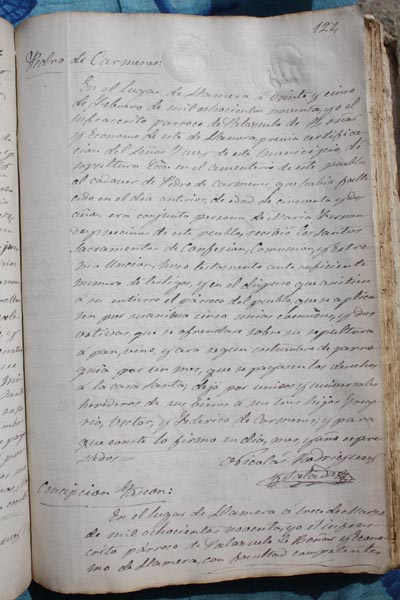 124
Pedro de Carmenes:
En el lugar de Llamera a veinte y cinco
de Febrero de mil ochocientos noventa, yo el
infrascrito párroco de Palazuelo de Boñar
y Ecónomo de este de Llamera, previa certifica-
cion del Señor Juez de este municipio, di
sepultura Ecca. en el cementerio de este pueblo,
al cadaver de Pedro de Carmenes, que habia falle-
cido en el dia anterior, de edad de cincuenta y dos
años, era conjunta persona de Maria Fernan-
dez, vecinos de este pueblo, recibió los Santos
Sacramentos de Confesion, Comunion, y Estre-
ma Uncion, hizo testamento ante suficiente
número de testigos, y en él dispuso que asistiera
á su entierro el párroco del pueblo, que se aplica-
sen por su anima cinco misas comunes, y dos
votivas, que se ofrendase sobre su sepultura
a pan, vino, y cera segun costumbre de parro-
quia por un mes, que se paguen los derechos
á la casa santa, dejó por unicos y universales
herederos de sus bienes a sus tres hijos Grego-
rio, Victor, y Federico de Carmenes; y para
que conste lo firmo en dia, mes, y año espre-
sados.
Nicolás Rodriguez
Concepcion Rascon:
En el lugar de Llamera a trece de Marzo
de mil ochocientos noventa, yo el infras-
crito párroco de Palazuelo de Boñar y Econo-
mo de Llamera, con facultad competente